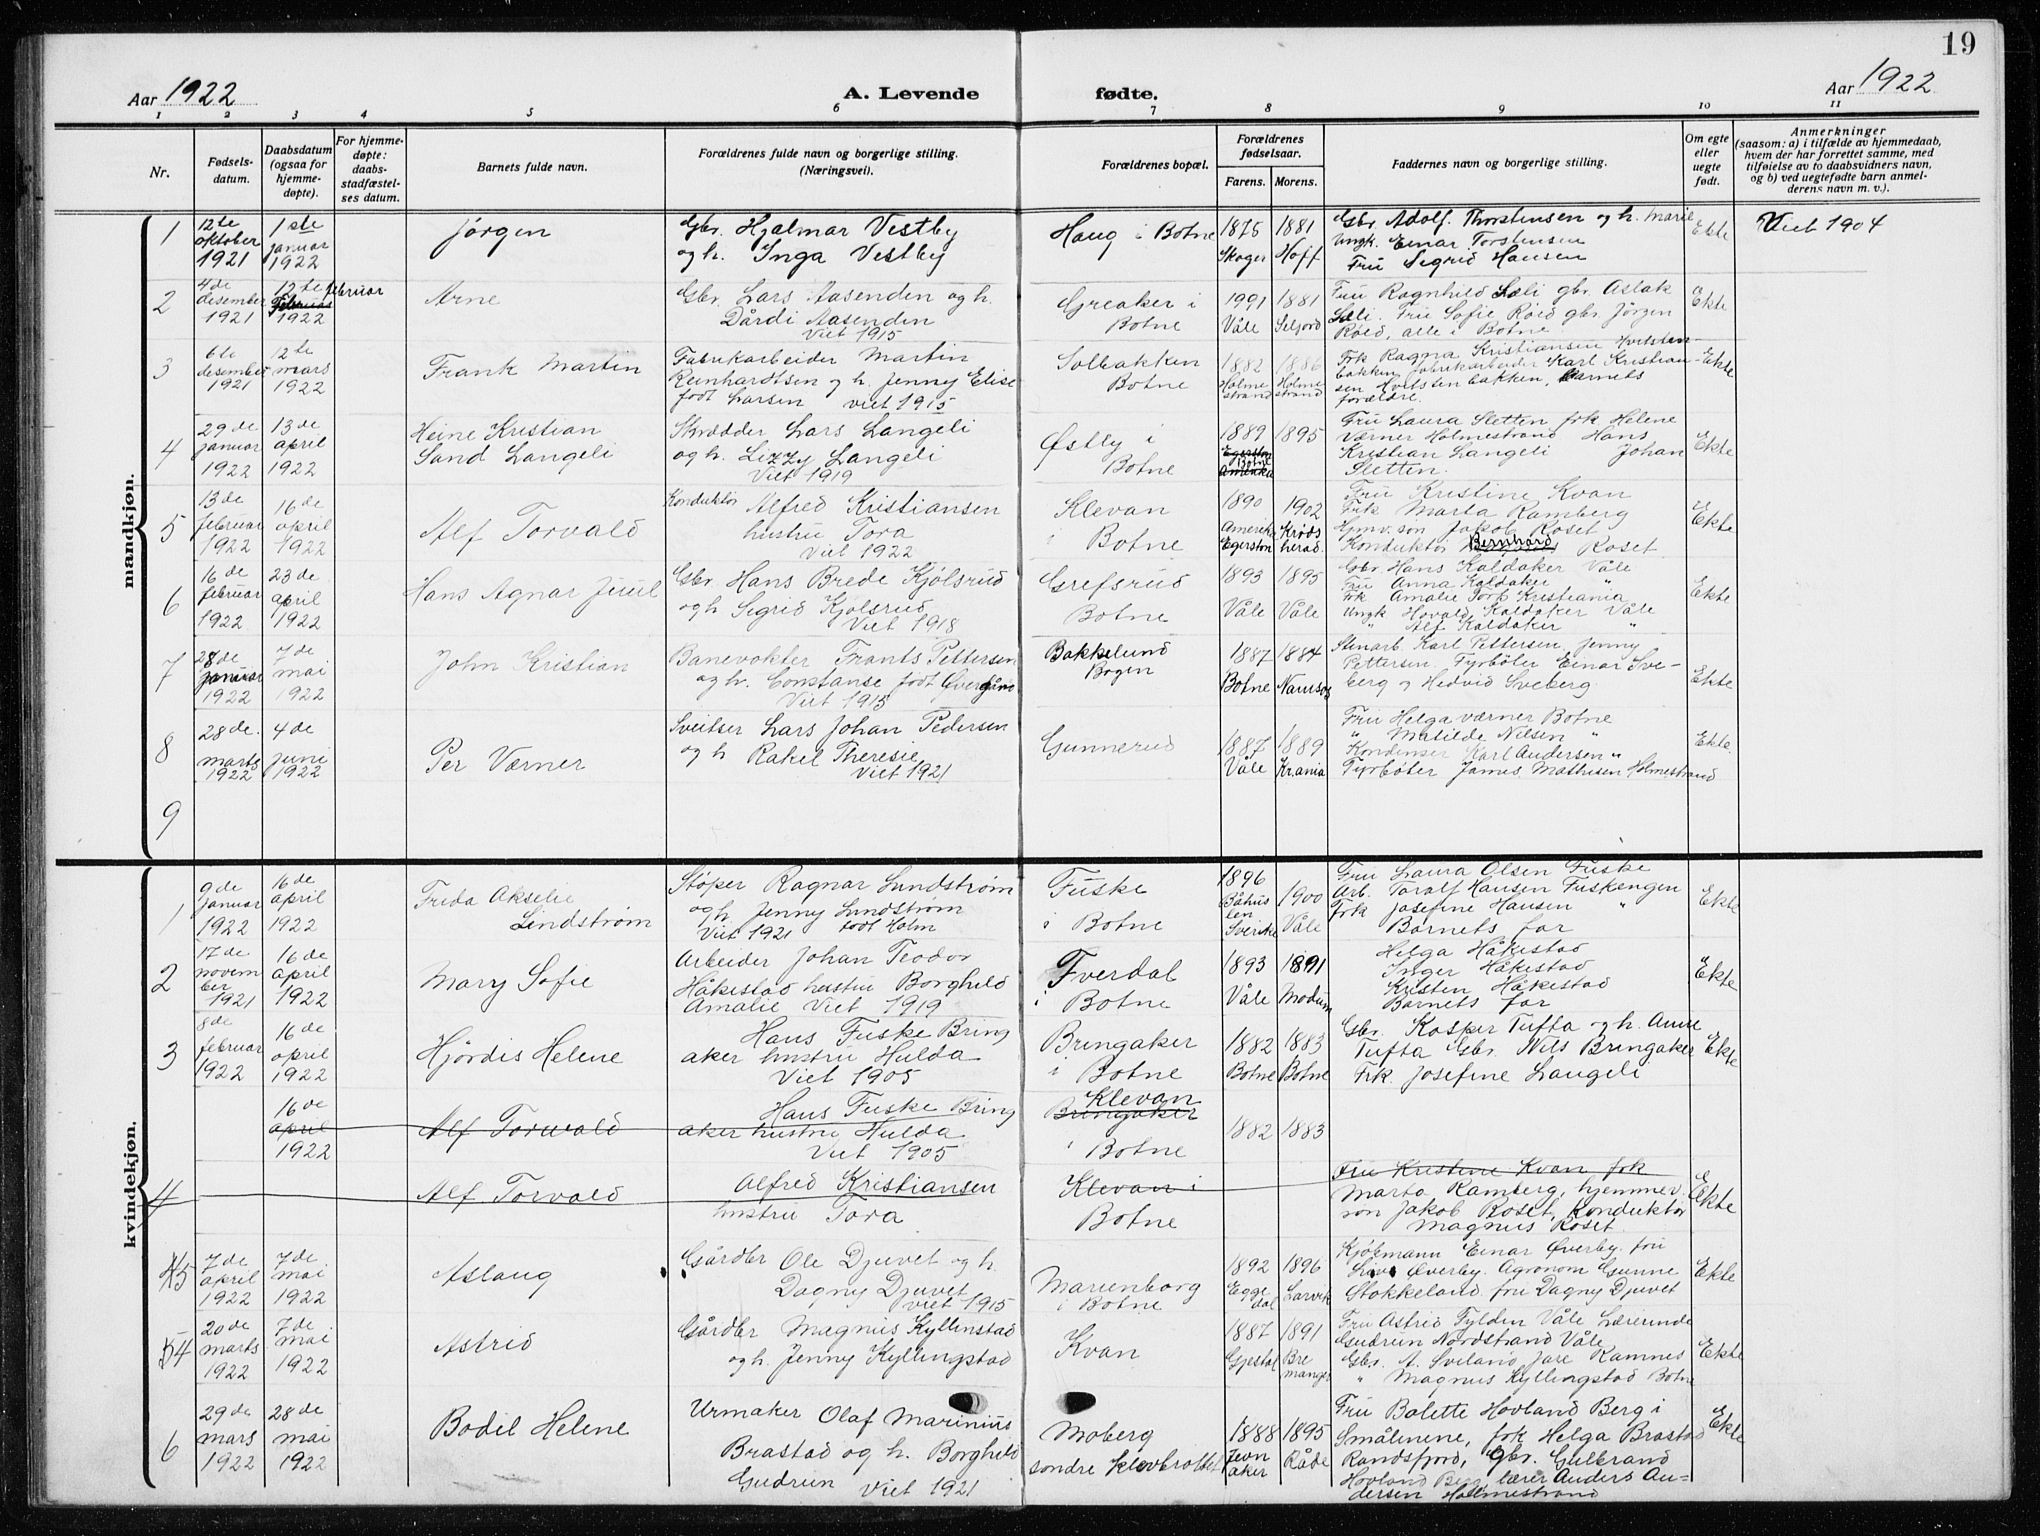 19
Aar 1922
A. Levende
fødte.
Aar 1922
1 2 3 4 5 6 7 8 9 10 11
Nr.
Fødsels-
datum.
Daabsdatum
(ogsaa for
hjemme-
døpte).
For hjemme-
døpte:
daabs-
stadfæstel-
ses datum.
Barnets fulde navn.
Forældrenes fulde navn og borgerlige stilling.
(Næringsvei).
Forældrenes bopæl.
Forældrenes
fødselsaar.
Farens. Morens.
Faddernes navn og borgerlige stilling.
Om egte
eller
uegte
født.
Anmerkninger
(saasom: a) i tilfælde av hjemmedaab,
hvem der har forrettet samme, med
tilføielse av to daabsvidners navn,
og b) ved uegtefødte barn anmel-
derens navn m. v.).
mandkjøn.
1
12te
oktober
1921
1ste
januar
1922
Jørgen
Gbr. Hjalmar Vestby
og h. Inga Vestby
Haug i Botne
1875 1881
Skoger Hoff
Gbr. Adolf Thorstensen og h. Marie
Ungk. Einar Torstensen
Fru Segrid Hansen
Ekte
Viet 1904
2
4de
desember
1921
12te februar
1922
Arne
Gbr. Lars Aasenden og h.
Dårdi Aasenden
Viet 1915
Greaker i
Botne
1991 1881
Våle Seljord
Fru Ragnhild Sæli gbr. Aslak
Sæli. Fru Sofie Røed gbr. Jørgen
Røed, alle i Botne
Ekte
3
6te
desember
1921
12te
mars
1922
Frank Martin
Fabrikarbeider Martin
Reinhardtsen og h. Jenny Elise
født Larsen viet 1915
Solbakken
Botne
1882 1886
Holme Holme
strand strand
Frk Ragna Kristiansen Hvitsten-
bakken, fabrikarbeider Karl Kristian-
sen Hvitstenbakken, Barnets
forældre.
Ekte
4
29de
januar
1922
13de
april
1922
Heine Kristian
Sand Langeli
Skrædder Lars Langeli
og h. Lizzy Langeli
Viet 1919
Østby i
Botne
1889 1895
Botne
Fru Laura Sletten frk Helene
Værner Holmestrand Hans
Kristian Langeli Johan
Sletten.
Ekte
5
13de
februar
1922
16de
april
1922
Alf Torvald
Konduktør Alfred Kristiansen
hustru Tora
Viet 1922
Klevan
i Botne
1890 1902
Amerika Krøds
Egerston herad.
Fru Kristine Kvan
Frk Marta Ramberg
Gmv. søn Jakob Roset
Konduktør Bernhard Roset
Ekte
6
16de
februar
1922
23de
april
1922
Hans Agnar Juul
Gbr. Hans Brede Kjølsrud
og h. Segrid Kjølsrud
Viet 1918
Grefsrud
Botne
1893 1895
Våle Våle
Gbr. Hans Kaldaker Våle
Fru Anna Kaldaker "
Frk Amalie Torp Kristiania
Ungk Hovald Kaldaker Våle
" Alf Kaldaker "
Ekte
7
28de
januar
1922
7de
mai
1922
John Kristian
Banevokter Frants Pettersen
og h. Constanse født Øvergård
Viet 1915
Bakkelund
Bogen
1887 1884
Botne Namsos
Stenarb. Karl Pettersen, Jenny
Pettersen. Fyrbøter Einar Sve-
berg og Hedvid Sveberg
Ekte
8
28de
marts
1922
4de
juni
1922
Per Værner
Sveitser Lars Johan Pedersen
og h Rakel Theresie
Viet 1921
Gunnerud
1887 1889
Våle Kr.ania
Fru Helga Værner Botne
" Matilde Nilsen "
Kondenser Karl Andersen "
Fyrbøter James Mathisen Holmestrand
Ekte
9
kvindekjøn.
1
9de
januar
1922
16de
april
1922
Freda Akselie
Lindstrøm
Støper Ragnar Lundstrøm
og h. Jenny Lundstrøm
Viet 1921 født Holm
Fuske
i Botne
1896 1900
Båhus
len
Sverike Våle
Fru Laura Olsen Fuske
Arb. Toralf Hansen Fuskengen
Frk Josefine Hansen "
Barnets far
Ekte
2
17de
novem
ber
1921
16de
april
1922
Mary Sofie
Arbeider Johan Teodor
Håkestad hustru Borghild
Amalie Viet 1919
Fverdal
i Botne
1893 1891
Våle Modum
Helga Håkestad
Inger Håkestad
Kristen Håkestad
Barnets far
Ekte
3
8de
februar
1922
16de
april
1922
Hjørdis Helene
Hans Fuske Bring
aker hustru Hulda
Viet 1905
Bringaker
i Botne
1882 1883
Botne Botne
Gbr. Kasper Tufta og h. Anne
Tufta Gbr. Nils Bringaker
Frk. Josefine Langeli
Ekte
16de
april
1922
Alf Torvald
Hans Fuske Bring
aker hustru Hulda
Viet 1905
Klevan
Bringaker
i Botne
1882 1883
4
Alf Torvald
Alfred Kristiansen
hustru Tora
Klevan i
Botne
Fru Kristine Kvan frk
Marta Ramberg, hjemmev.
søn Jakob Roset, Konduktør
Magnus Roset
Ekte
5
7de
april
1922
7de
mai
1922
Aslaug
Gårdbr Ole Djuvet og h.
Dagny Djuvet
viet 1915
Marienborg
i Botne
1892 1896
Egge
dal Larvik
Kjøbmann Einar Øverby. fru
Liv Øverby. Agronom Gunne
Stokkeland. fru Dagny Djuvet
Ekte
4
20de
marts
1922
7de
mai
1922
Astrid
Gårdbr Magnus Kyllinstad
og h. Jenny Kyllingstad
Kvan
1887 1891
Gjestal Bre
manger
Fru Astrid Tylden Våle Lærerinde
Gudrun Nordstrand Våle
Gbr. A. Sviland, Jare Ramnes
" Magnus Kyllingstad Botne
Ekte
6
29de
mars
1922
28de
mai
1922
Bodil Helene
Urmaker Olaf Marinius
Brastad og h. Borghild
Gudrun Viet 1921
Moberg
søndre klevbrottet
1888 1895
Jevn
aker Råde
Fru Bolette Hovland Berg i
Smålenene, frk Helga Brastad
Randsfjord, Gbr. Gulbrand
Hovland Berg, lærer Anders An-
dersen Holmestrand
Ekte